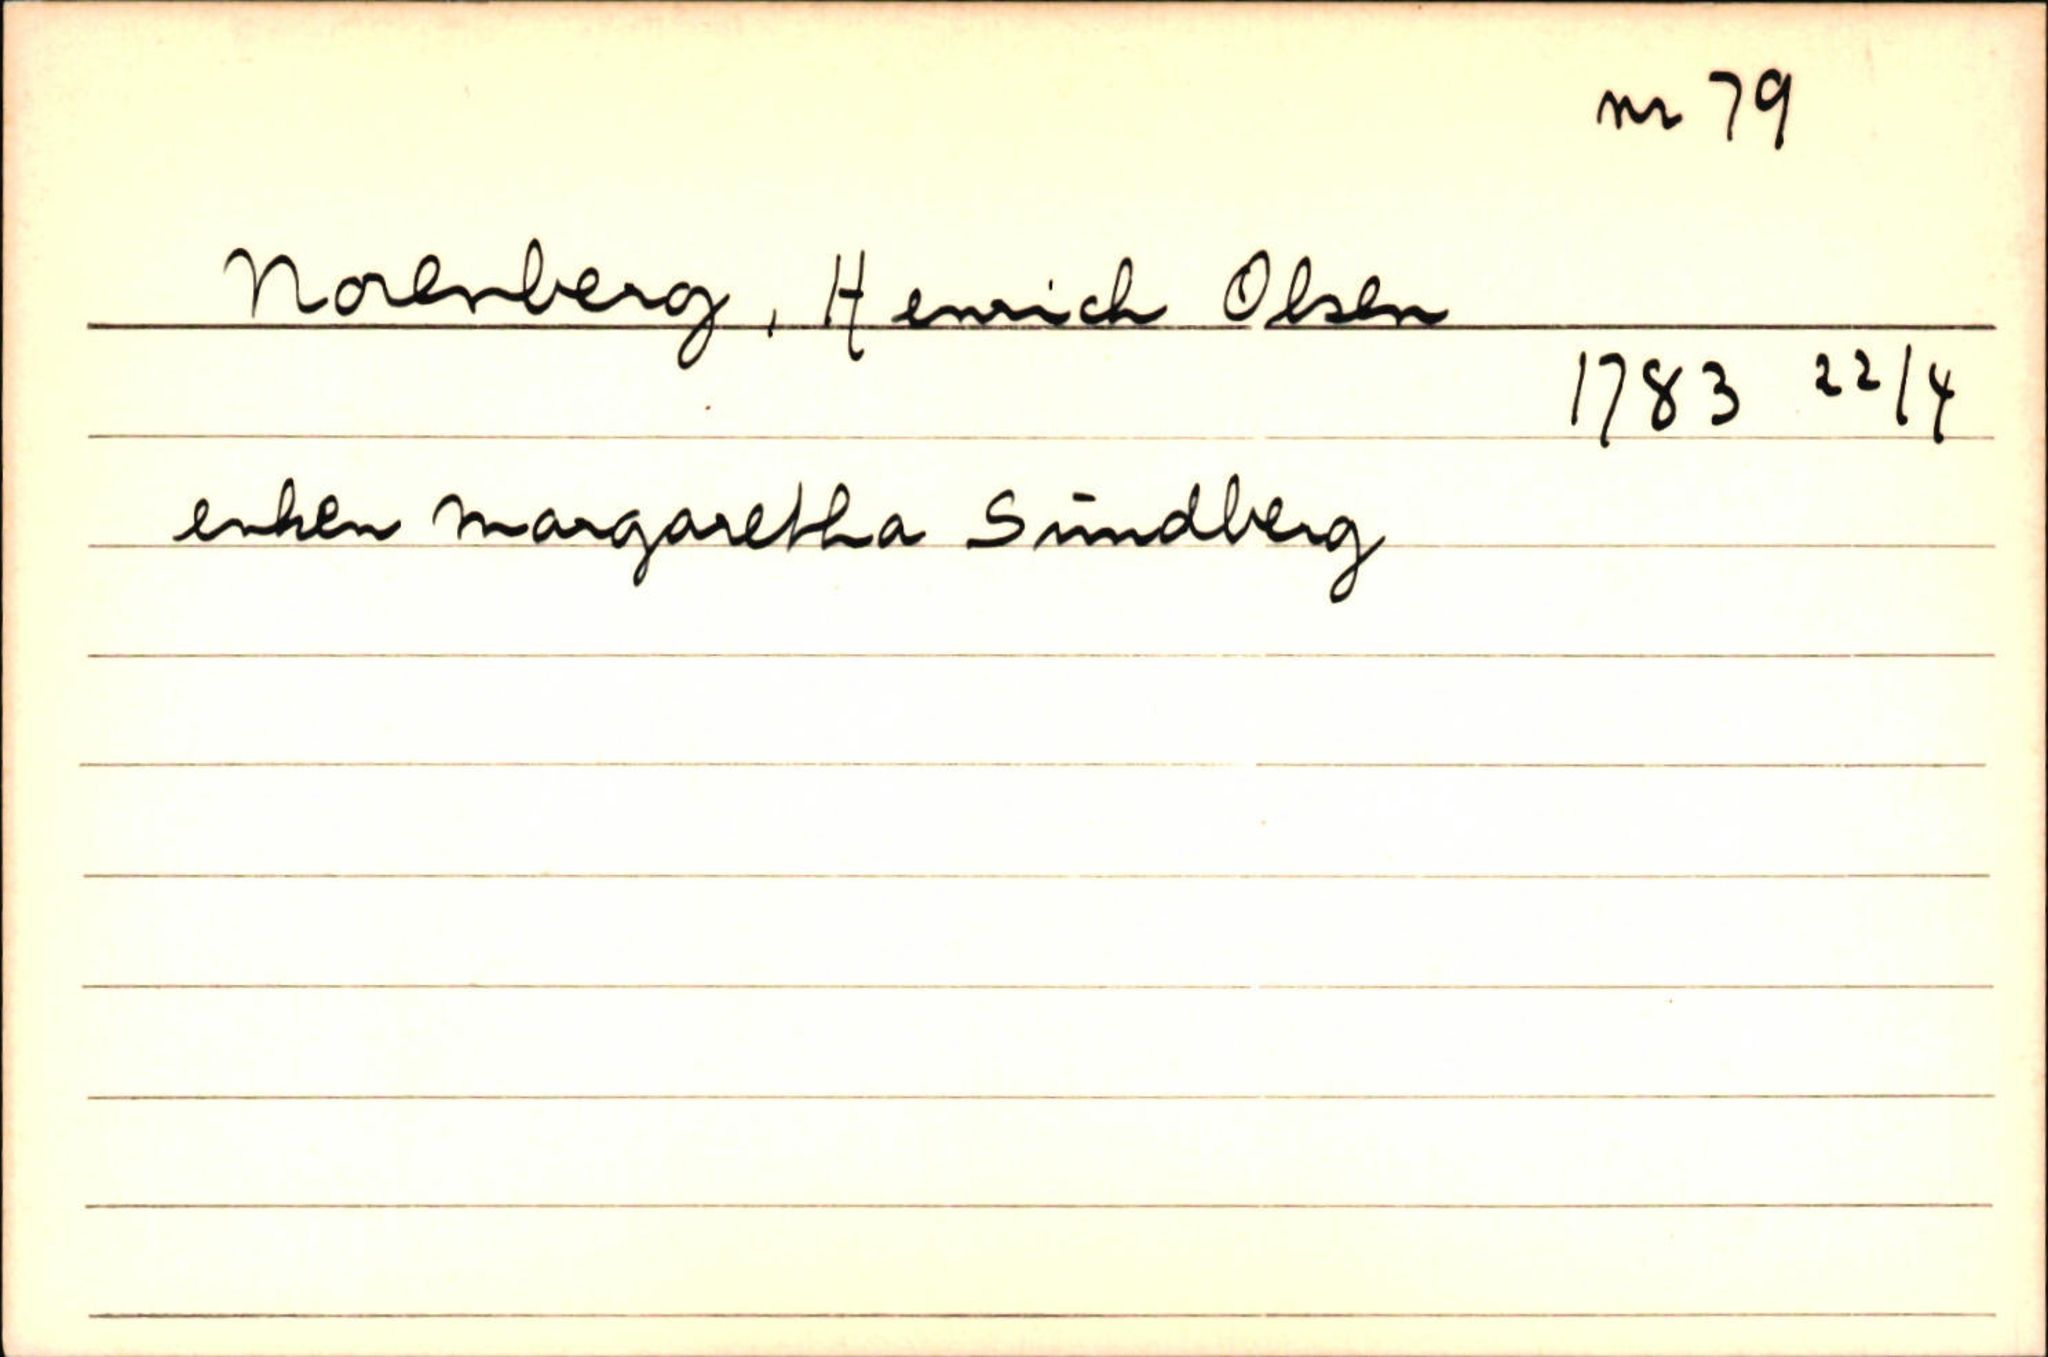 nr 79
Norenberg, Henrich Olsen
1783 22/4
enken Margaretha Sundberg